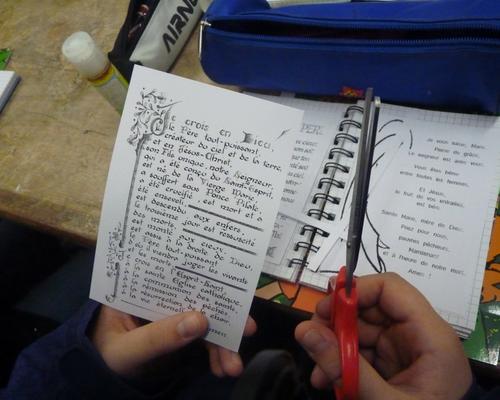 AIRN
Je crois en Dieu,
le Père tout-puissant,
créateur du ciel et de la terre,
et en Jésus-Christ,
son Fils unique, notre Seigneur,
qui a été conçu du Saint-Esprit,
est né de la Vierge Marie,
a souffert sous Ponce Pilate,
a été crucifié, est mort et a
été enseveli,
est descendu aux enfers,
le troisième jour est ressuscité
des morts,
est monté aux cieux,
est assis à la droite de Dieu,
le Père tout-puissant,
d'où il viendra juger les vivants
crois en l'Esprit-Saint,
la sainte Église catholique,
la communion des saints,
la rémission des péchés,
la résurrection de la chair,
vie éternelle
PÈRE
Je vous salue, Marie,
Pleine de grâce,
Le seigneur est avec vous.
Vous êtes bénie
entre toutes les femmes,
Et Jésus,
le fruit de vos entrailles,
est béni.
Sainte Marie, mère de Dieu,
Priez pour nous,
pauvres pécheurs,
Maintenant
et à l'heure de notre mort.
Amen !